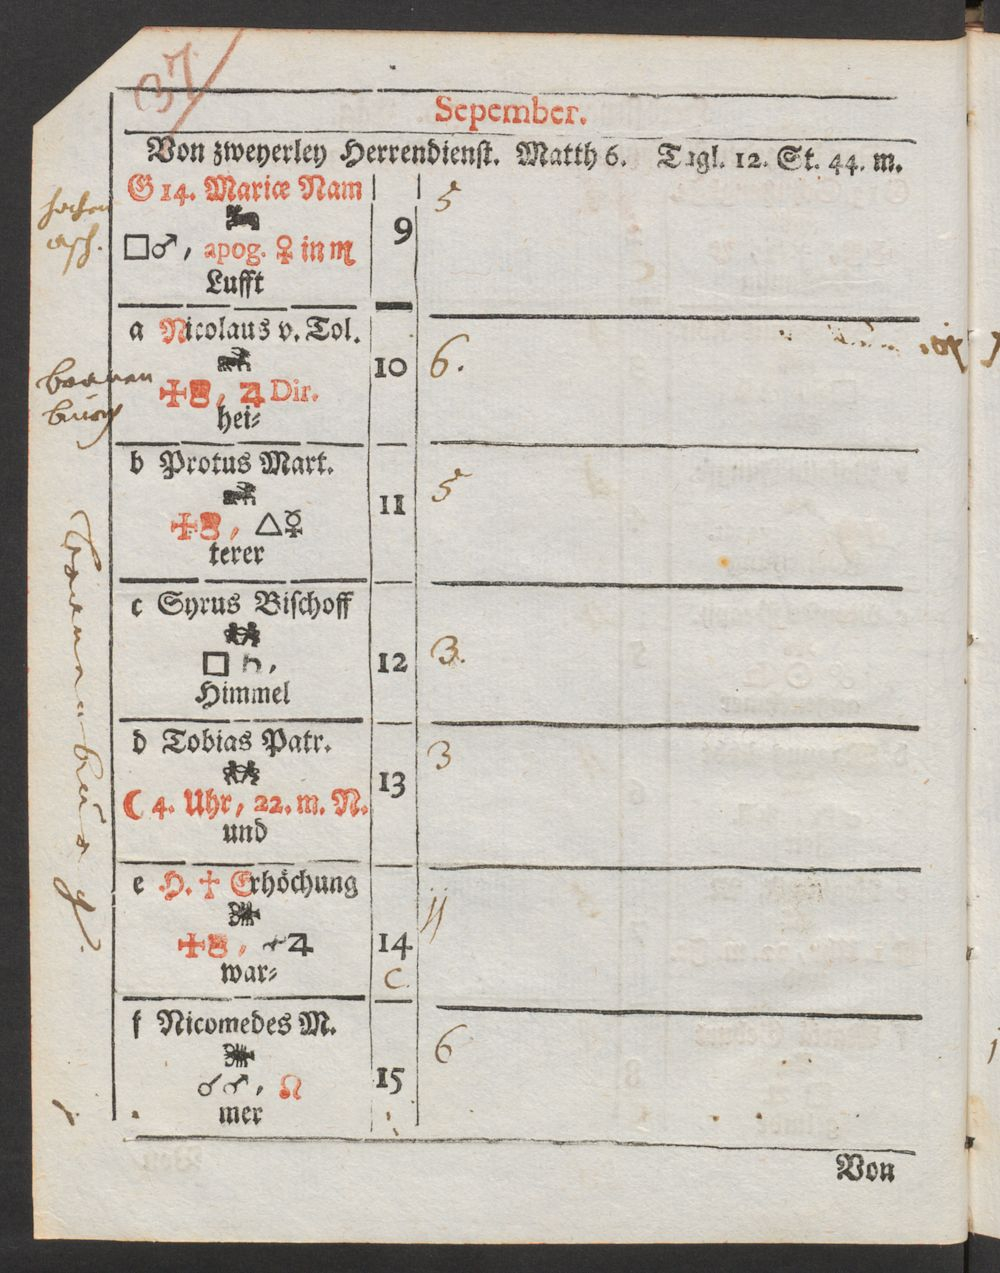 37
Sepember.
Von zweyerley Herrendienst. Matth 6. Tagl. 12. St. 44. m.
G 14. Mariæ Nam
9
5
□♂, apog. ♀ in ♍
Lufft
a Nicolaus v. Tol.
10
6.
, ♃ Dir.
hei⸗
b Protus Mart.
11
5
, △☿
terer
c Syrus Bischoff
12
3.
□ ♄,
Himmel
d Tobias Patr.
13
3
☾ 4. Uhr, 22. m. N.
und
e H. † Erhöchung
14
C
11
♃
war⸗
f Nicomedes M.
15
6
☌♂, ☊
mer
Von